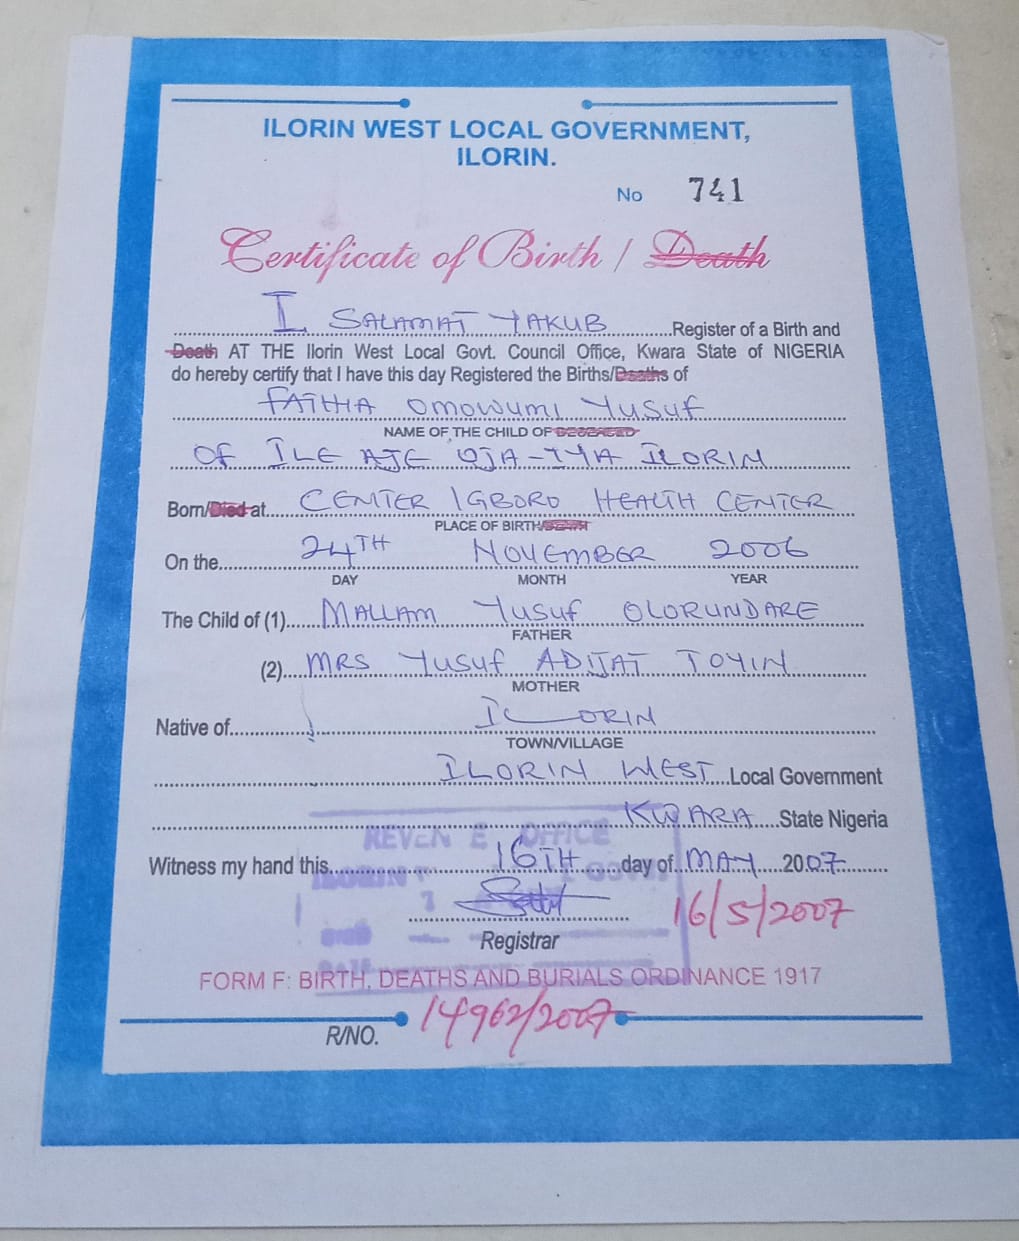 ILORIN WEST LOCAL GOVERNMENT,
ILORIN.
No 741
Certificate of Birth / Death
I SALAMAT YAKUB Register of a Birth and
Death AT THE Ilorin West Local Govt. Council Office, Kwara State of NIGERIA
do hereby certify that I have this day Registered the Births/Deaths of
FATIHA OMOWUMI YUSUF
NAME OF THE CHILD OF DECEASED
OF ILE AJE OJA-IYA ILORIN
Born/Died at CENTER IGBORO HEALTH CENTER
PLACE OF BIRTH/DEATH
On the 24TH NOVEMBER 2006
DAY MONTH YEAR
The Child of (1) MALLAM YUSUF OLORUNDARE
FATHER
(2) MRS YUSUF ADIJAT TOYIN
MOTHER
Native of ILORIN
TOWN/VILLAGE
ILORIN WEST Local Government
KWARA State Nigeria
REVEN E OFFICE
Witness my hand this 16TH day of MAY 2007
16/5/2007
Registrar
DATE
FORM F: BIRTH, DEATHS AND BURIALS ORDINANCE 1917
R/NO. 14962/2007